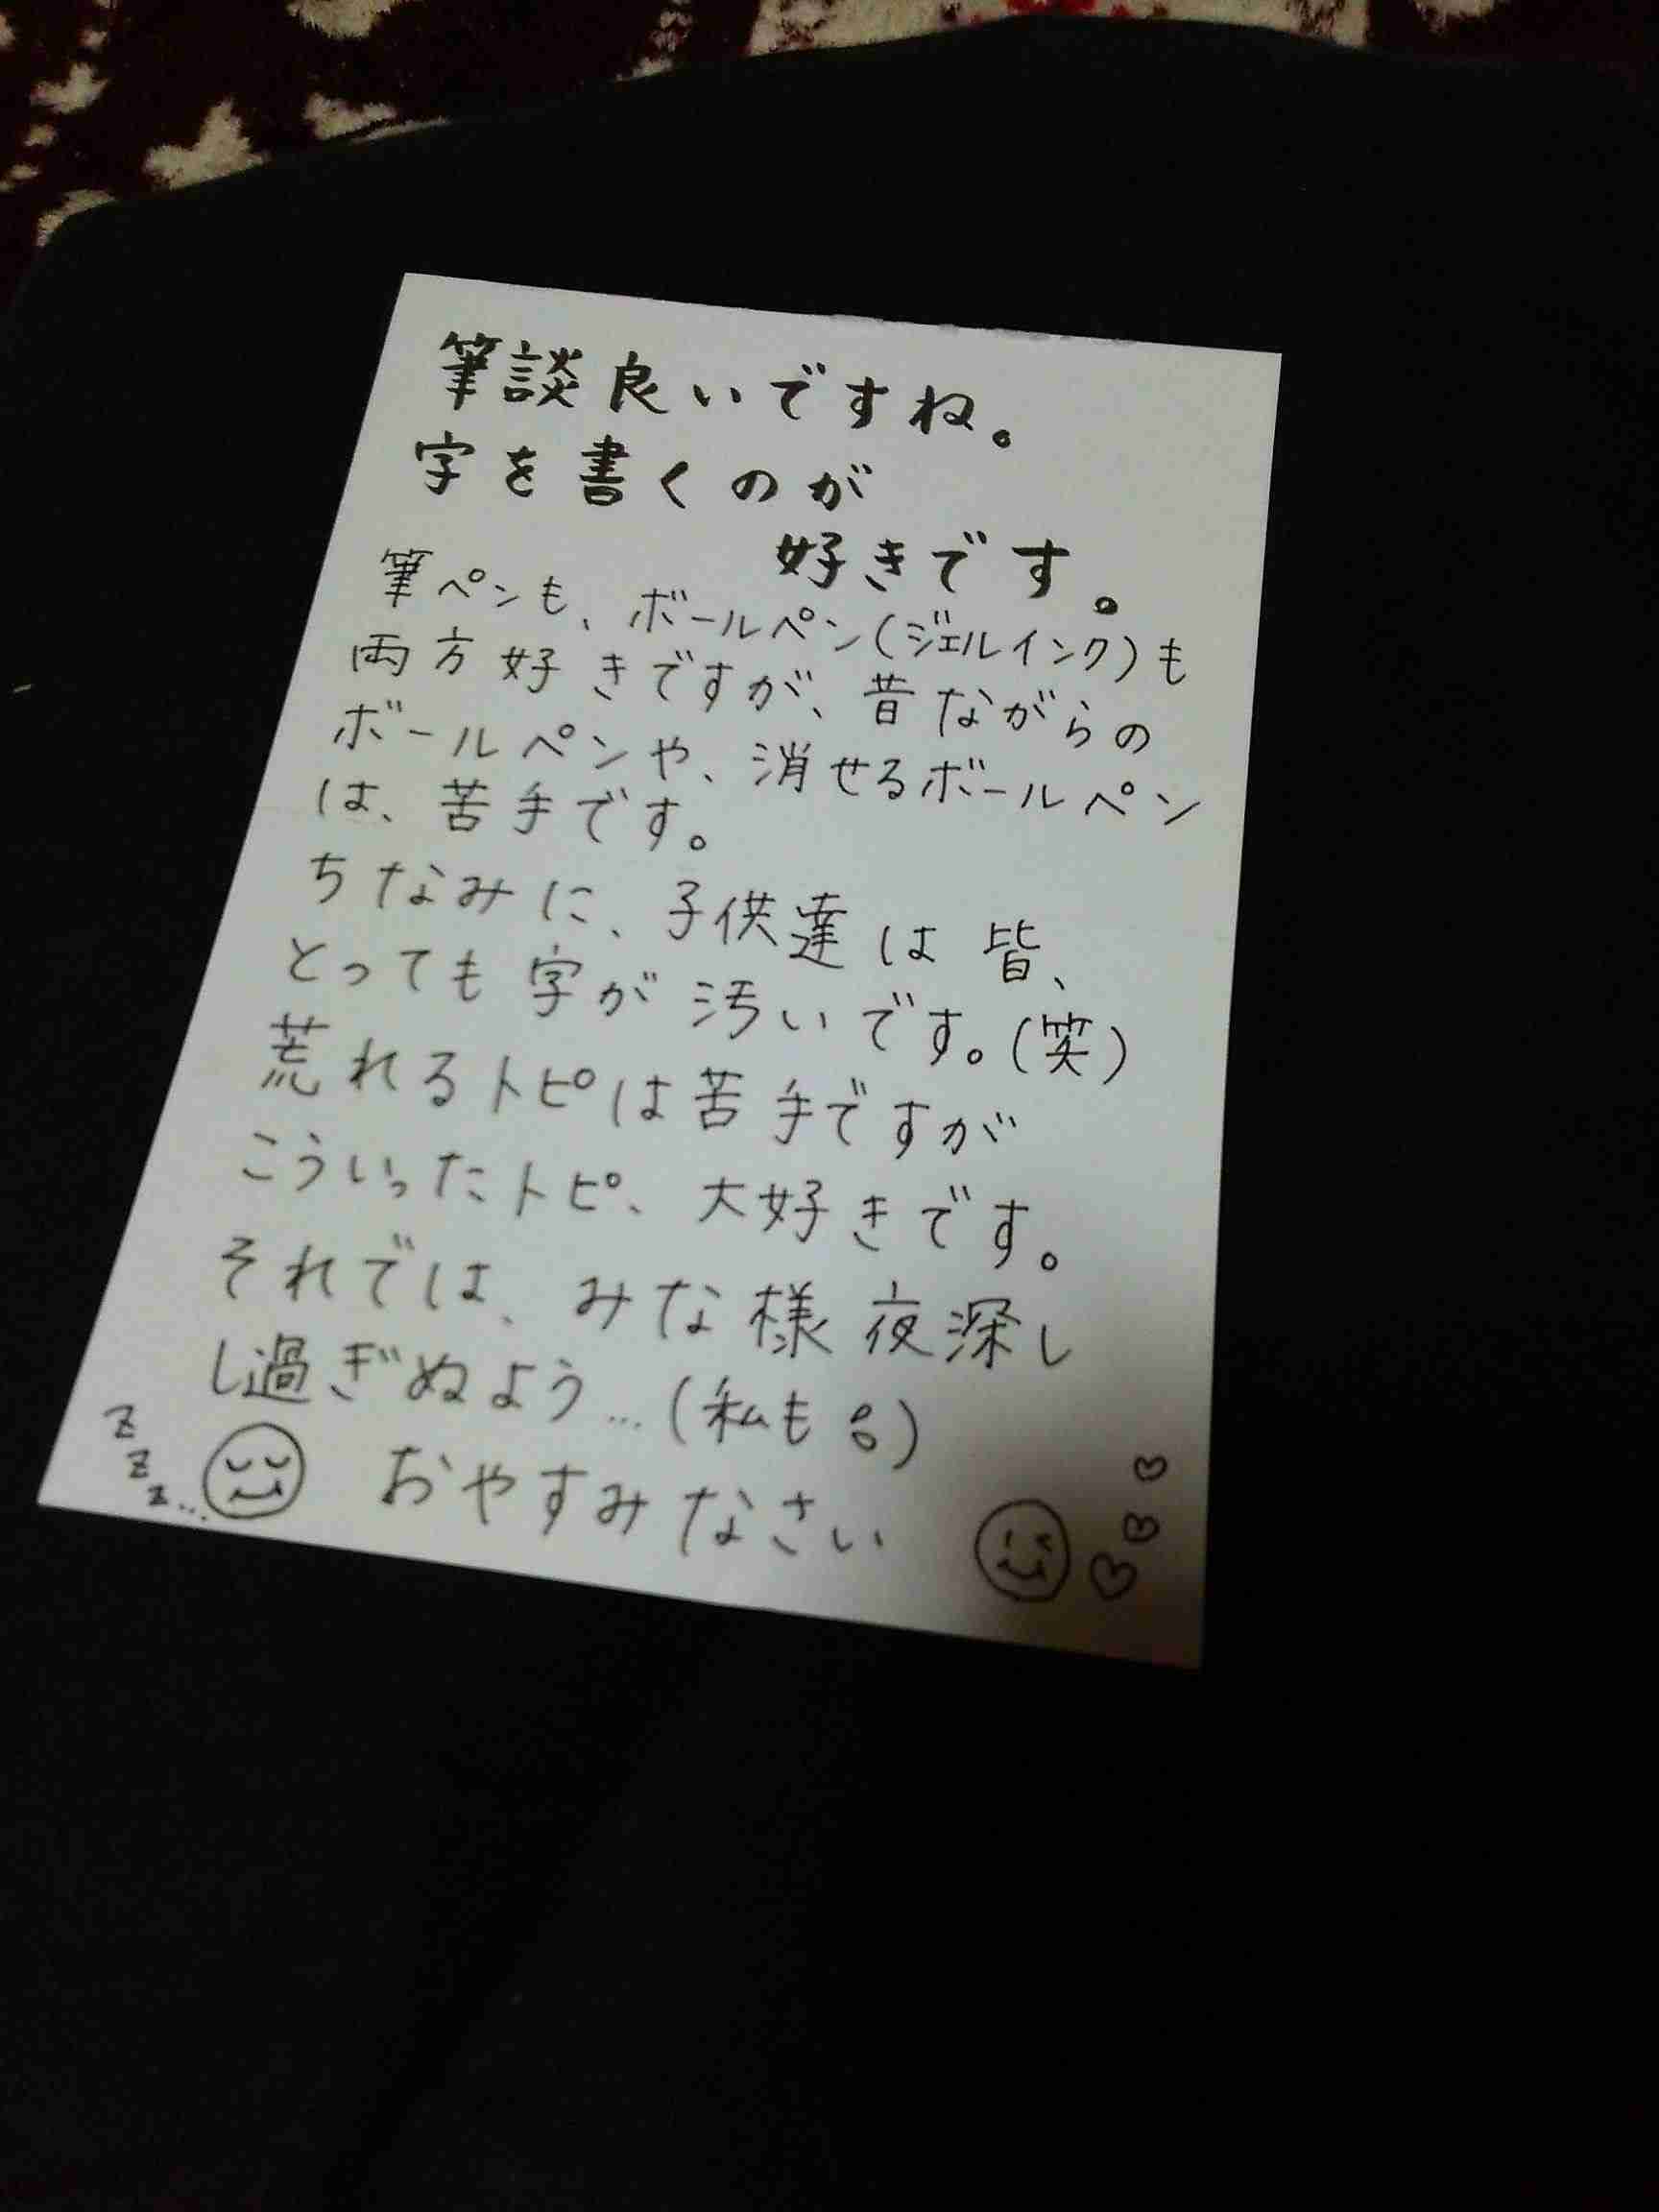 筆談良いですね。
字を書くのが
好きです。
筆ペンも、ボールペン(ジェルインク)も
両方好きですが、昔ながらの
ボールペンや、消せるボールペン
は、苦手です。
ちなみに、子供達は皆、
とっても字が汚いです。(笑)
荒れるトピは苦手ですが
こういったトピ、大好きです。
それでは、みな様夜深し
し過ぎぬよう…(私も)
zzz… おやすみなさい